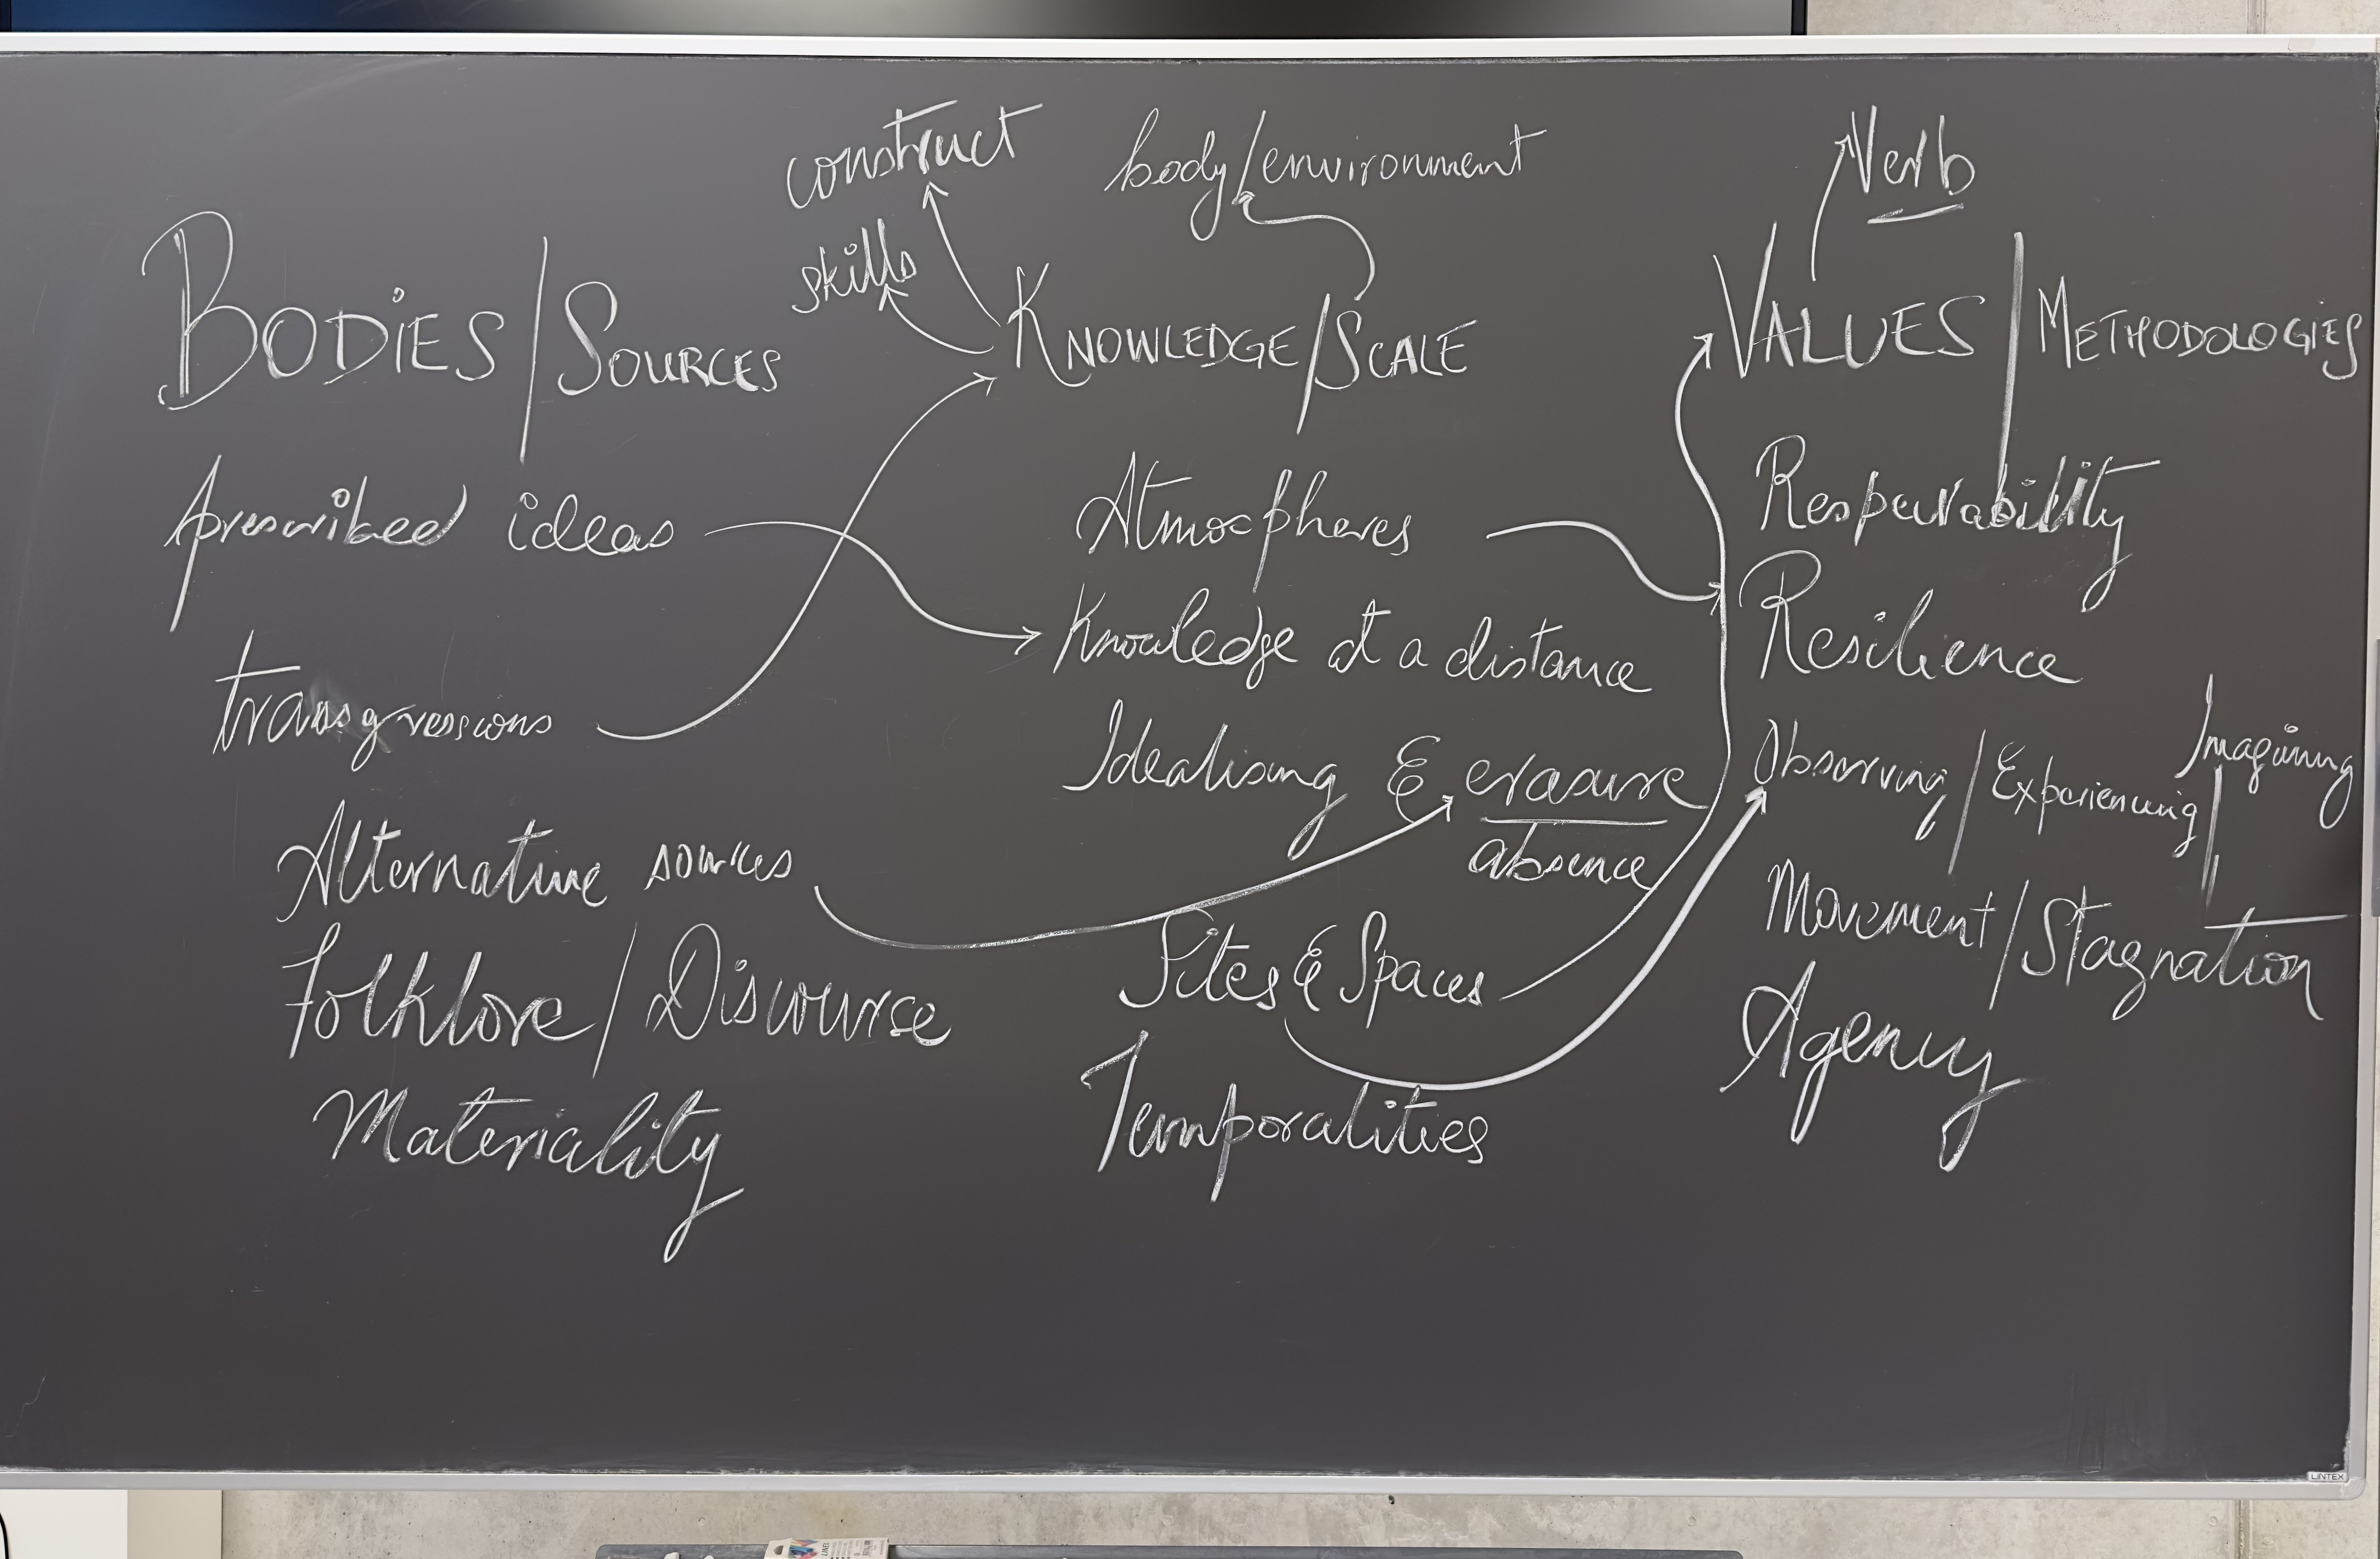 construct
body/environment
Verb
skills
BODIES/SOURCES
KNOWLEDGE/SCALE
VALUES/METHODOLOGIES
prescribed ideas
transgressions
Alternative sources
Folklore/Discourse
Materiality
Atmospheres
Knowledge at a distance
Idealising & erasure
absence
Sites & Spaces
Temporalities
Resilience
Observing/Experiencing/Imagining
Movement/Stagnation
Agency
LINTEX